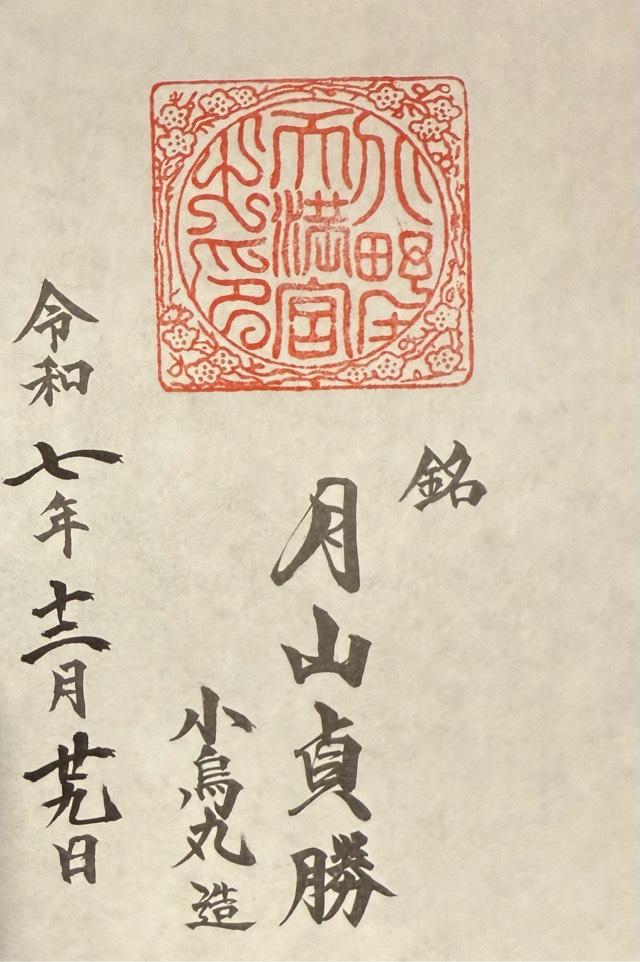 天満宮
銘
月山貞勝
小烏丸造
令和七年十二月廿九日